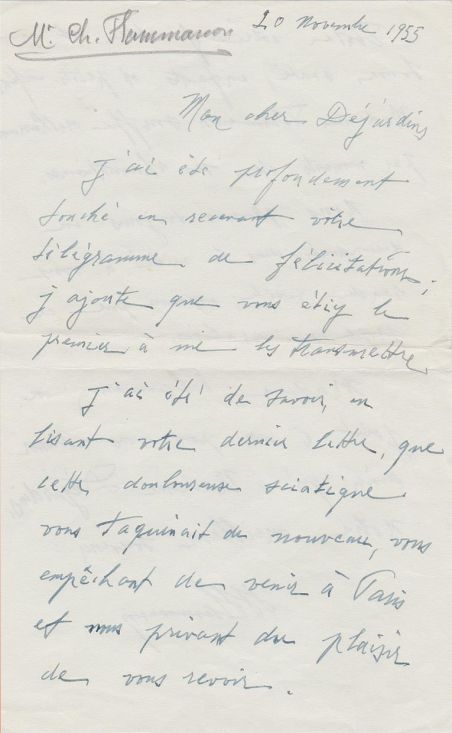 Mr Ch. Flammarion
20 Novembre 1955
Mon cher Déjardins
J'ai été profondement
touché en recevant vôtre
télégramme de félicitations;
j'ajoute que vous étiez le
premier à me les transmettre.
J'ai été de savoir, en
lisant votre dernier lettre, que
cette douloureuse sciatique
vous taquinait de nouveau, vous
empêchant de venir à Paris
et nous privant du plaisir
de vous revoir.